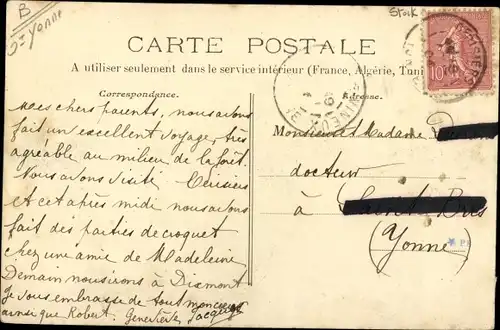 B
Stock
Yonne
CARTE POSTALE
A utiliser seulement dans le service intérieur (France, Algérie, Tuni
Correspondance.
Adresse.
Mes chers parents, nous avons
fait un excellent voyage, très
agréable au milieu de la forêt.
Nous avons visité Cerisiers
et cet après midi nous avons
fait des parties de croquet
chez une amie de Madeleine
Demain nous irons à Dixmont
Je vous embrasse de tout mon coeur
ainsi que Robert, Geneviève Jacques
Monsieur Madame
docteur
à
(Yonne)
10